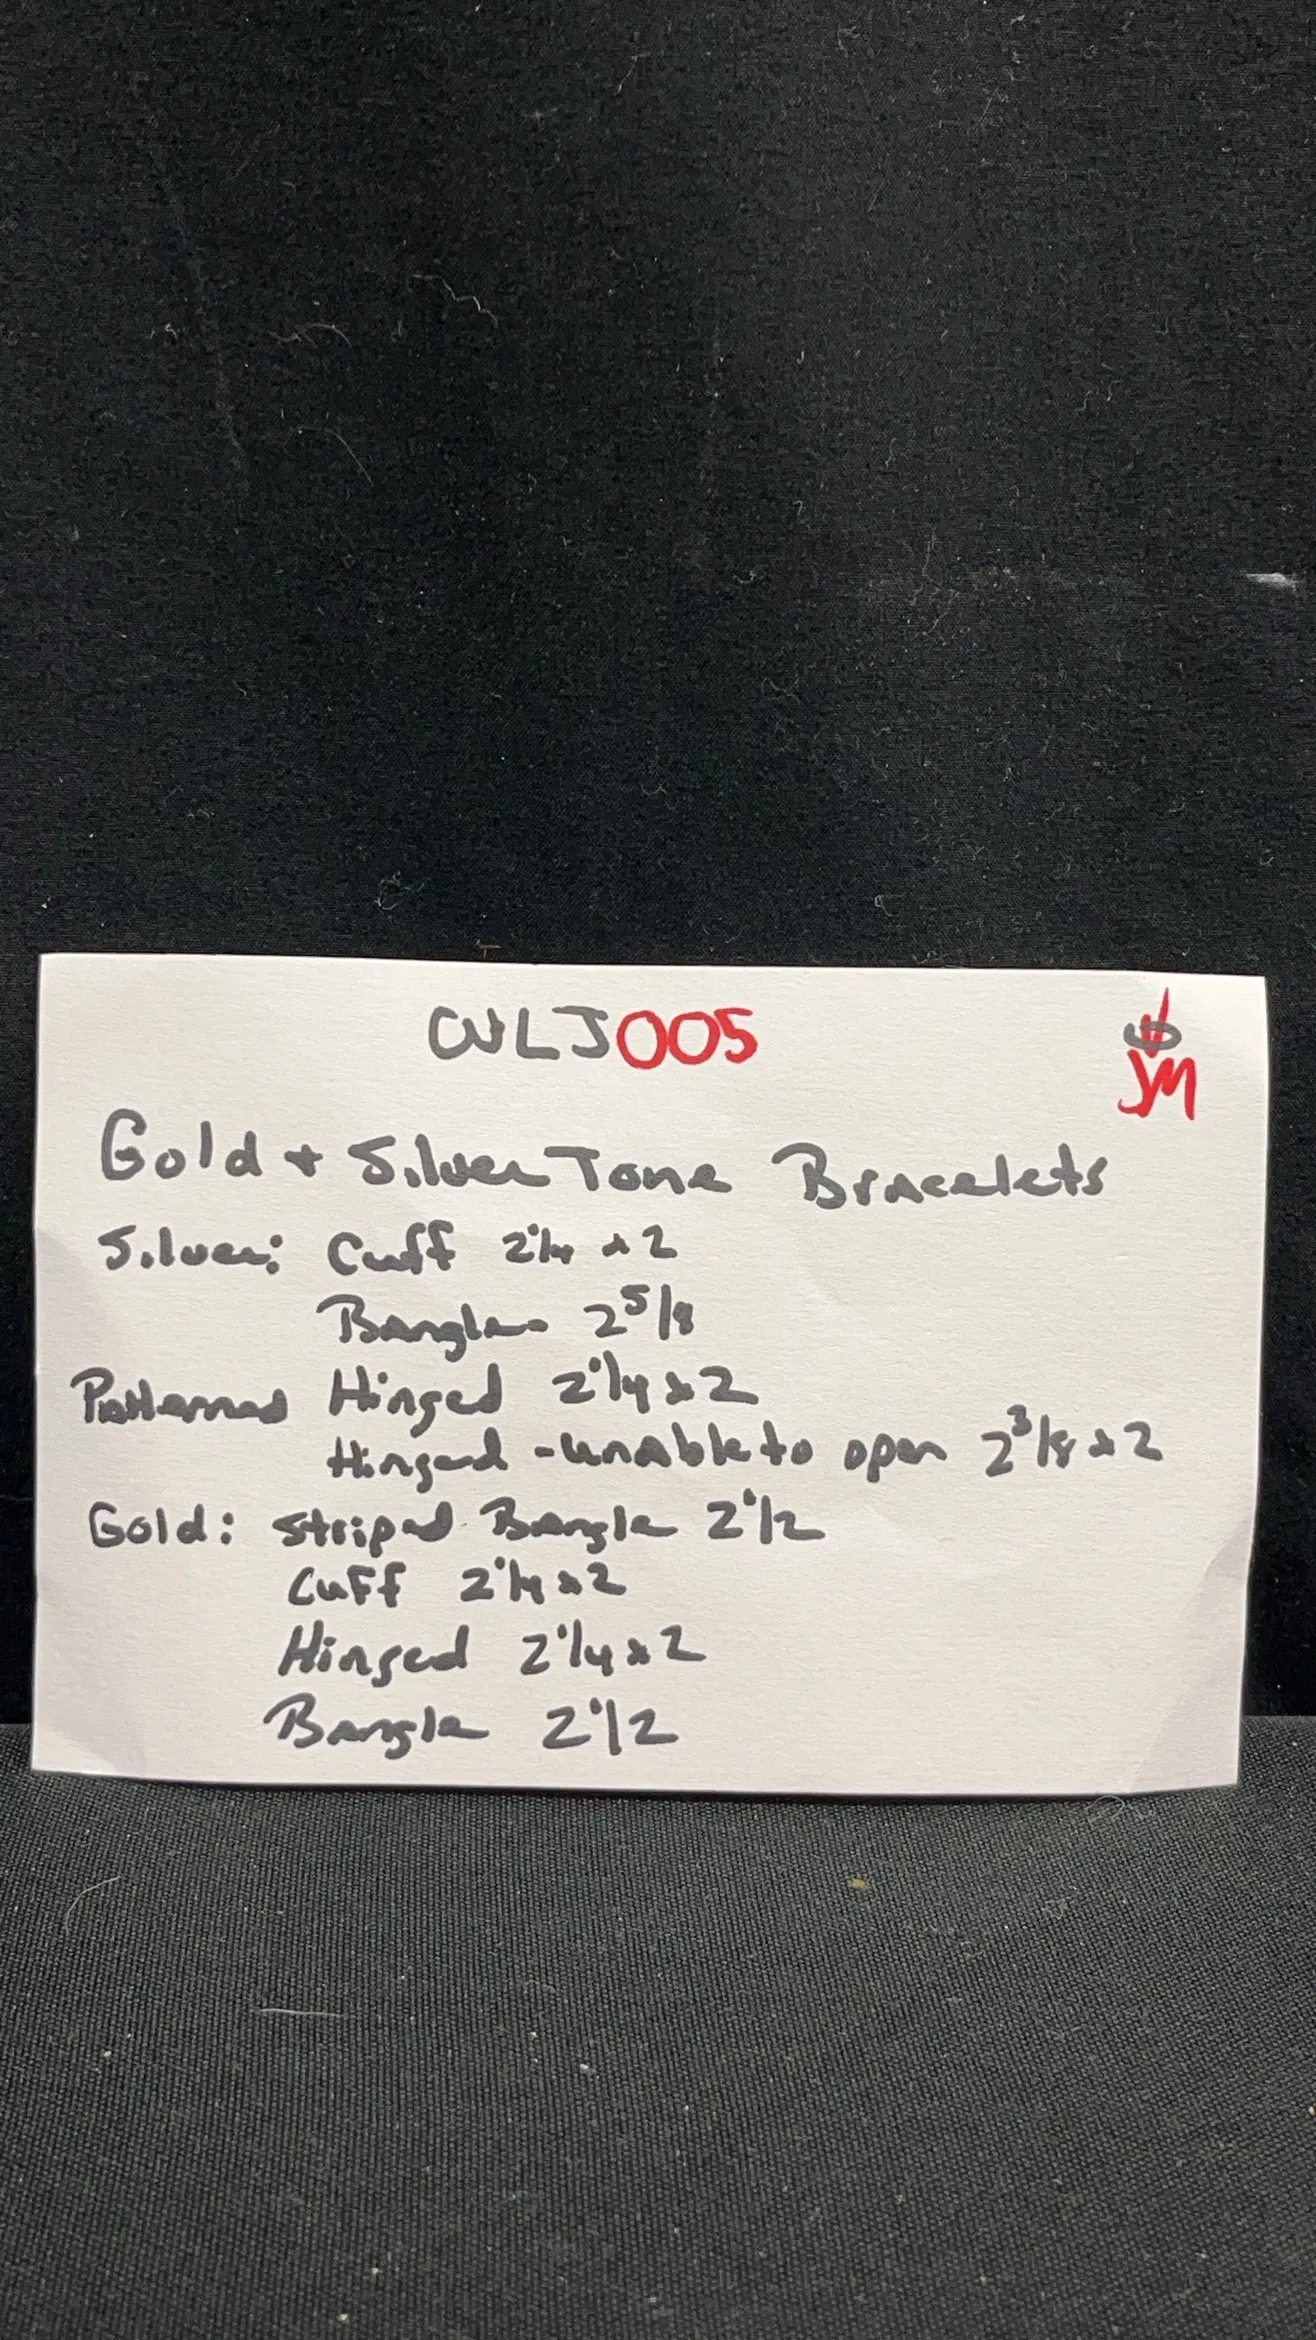 CVLJ005
JM
Gold + Silver Tone Bracelets
Silver: Cuff 2 1/4 x 2
Bangle 2 5/8
Patterned Hinged 2 1/4 x 2
Hinged - unable to open 2 3/8 x 2
Gold: Striped Bangle 2 1/2
Cuff 2 1/4 x 2
Hinged 2 1/4 x 2
Bangle 2 1/2